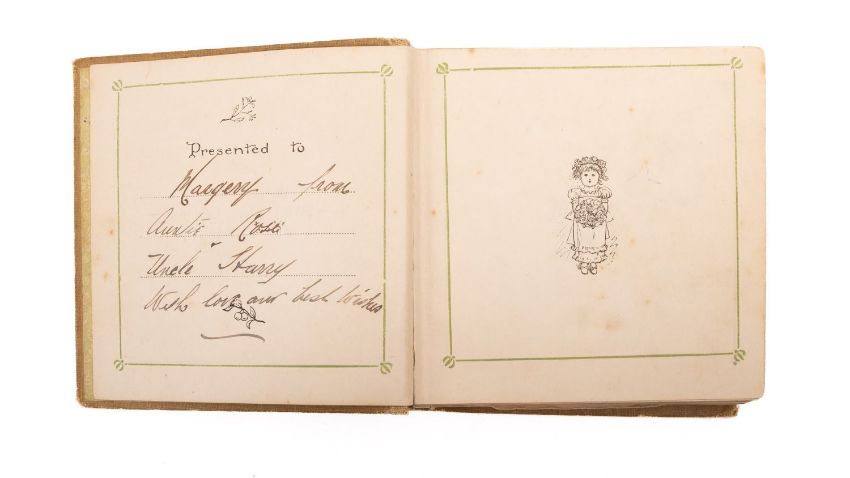 Presented to
Margery from
Auntie Rose
Uncle Harry
With love and best Wishes